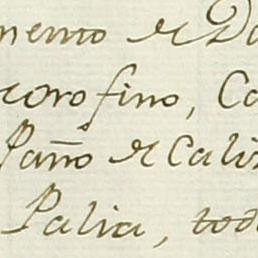 mento de Do
oro fino, Co
Paño de Cali
Palia, tod